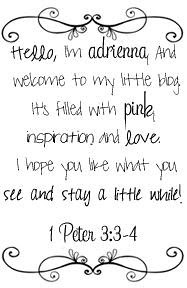 Hello, I'm adrienna, And
welcome to my little blog.
It's filled with pink,
inspiration, and love.
I hope you like what you
see and stay a little while!
1 Peter 3:3-4